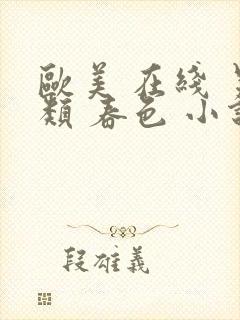 歐美 在綫
類 春色 小
段雄義